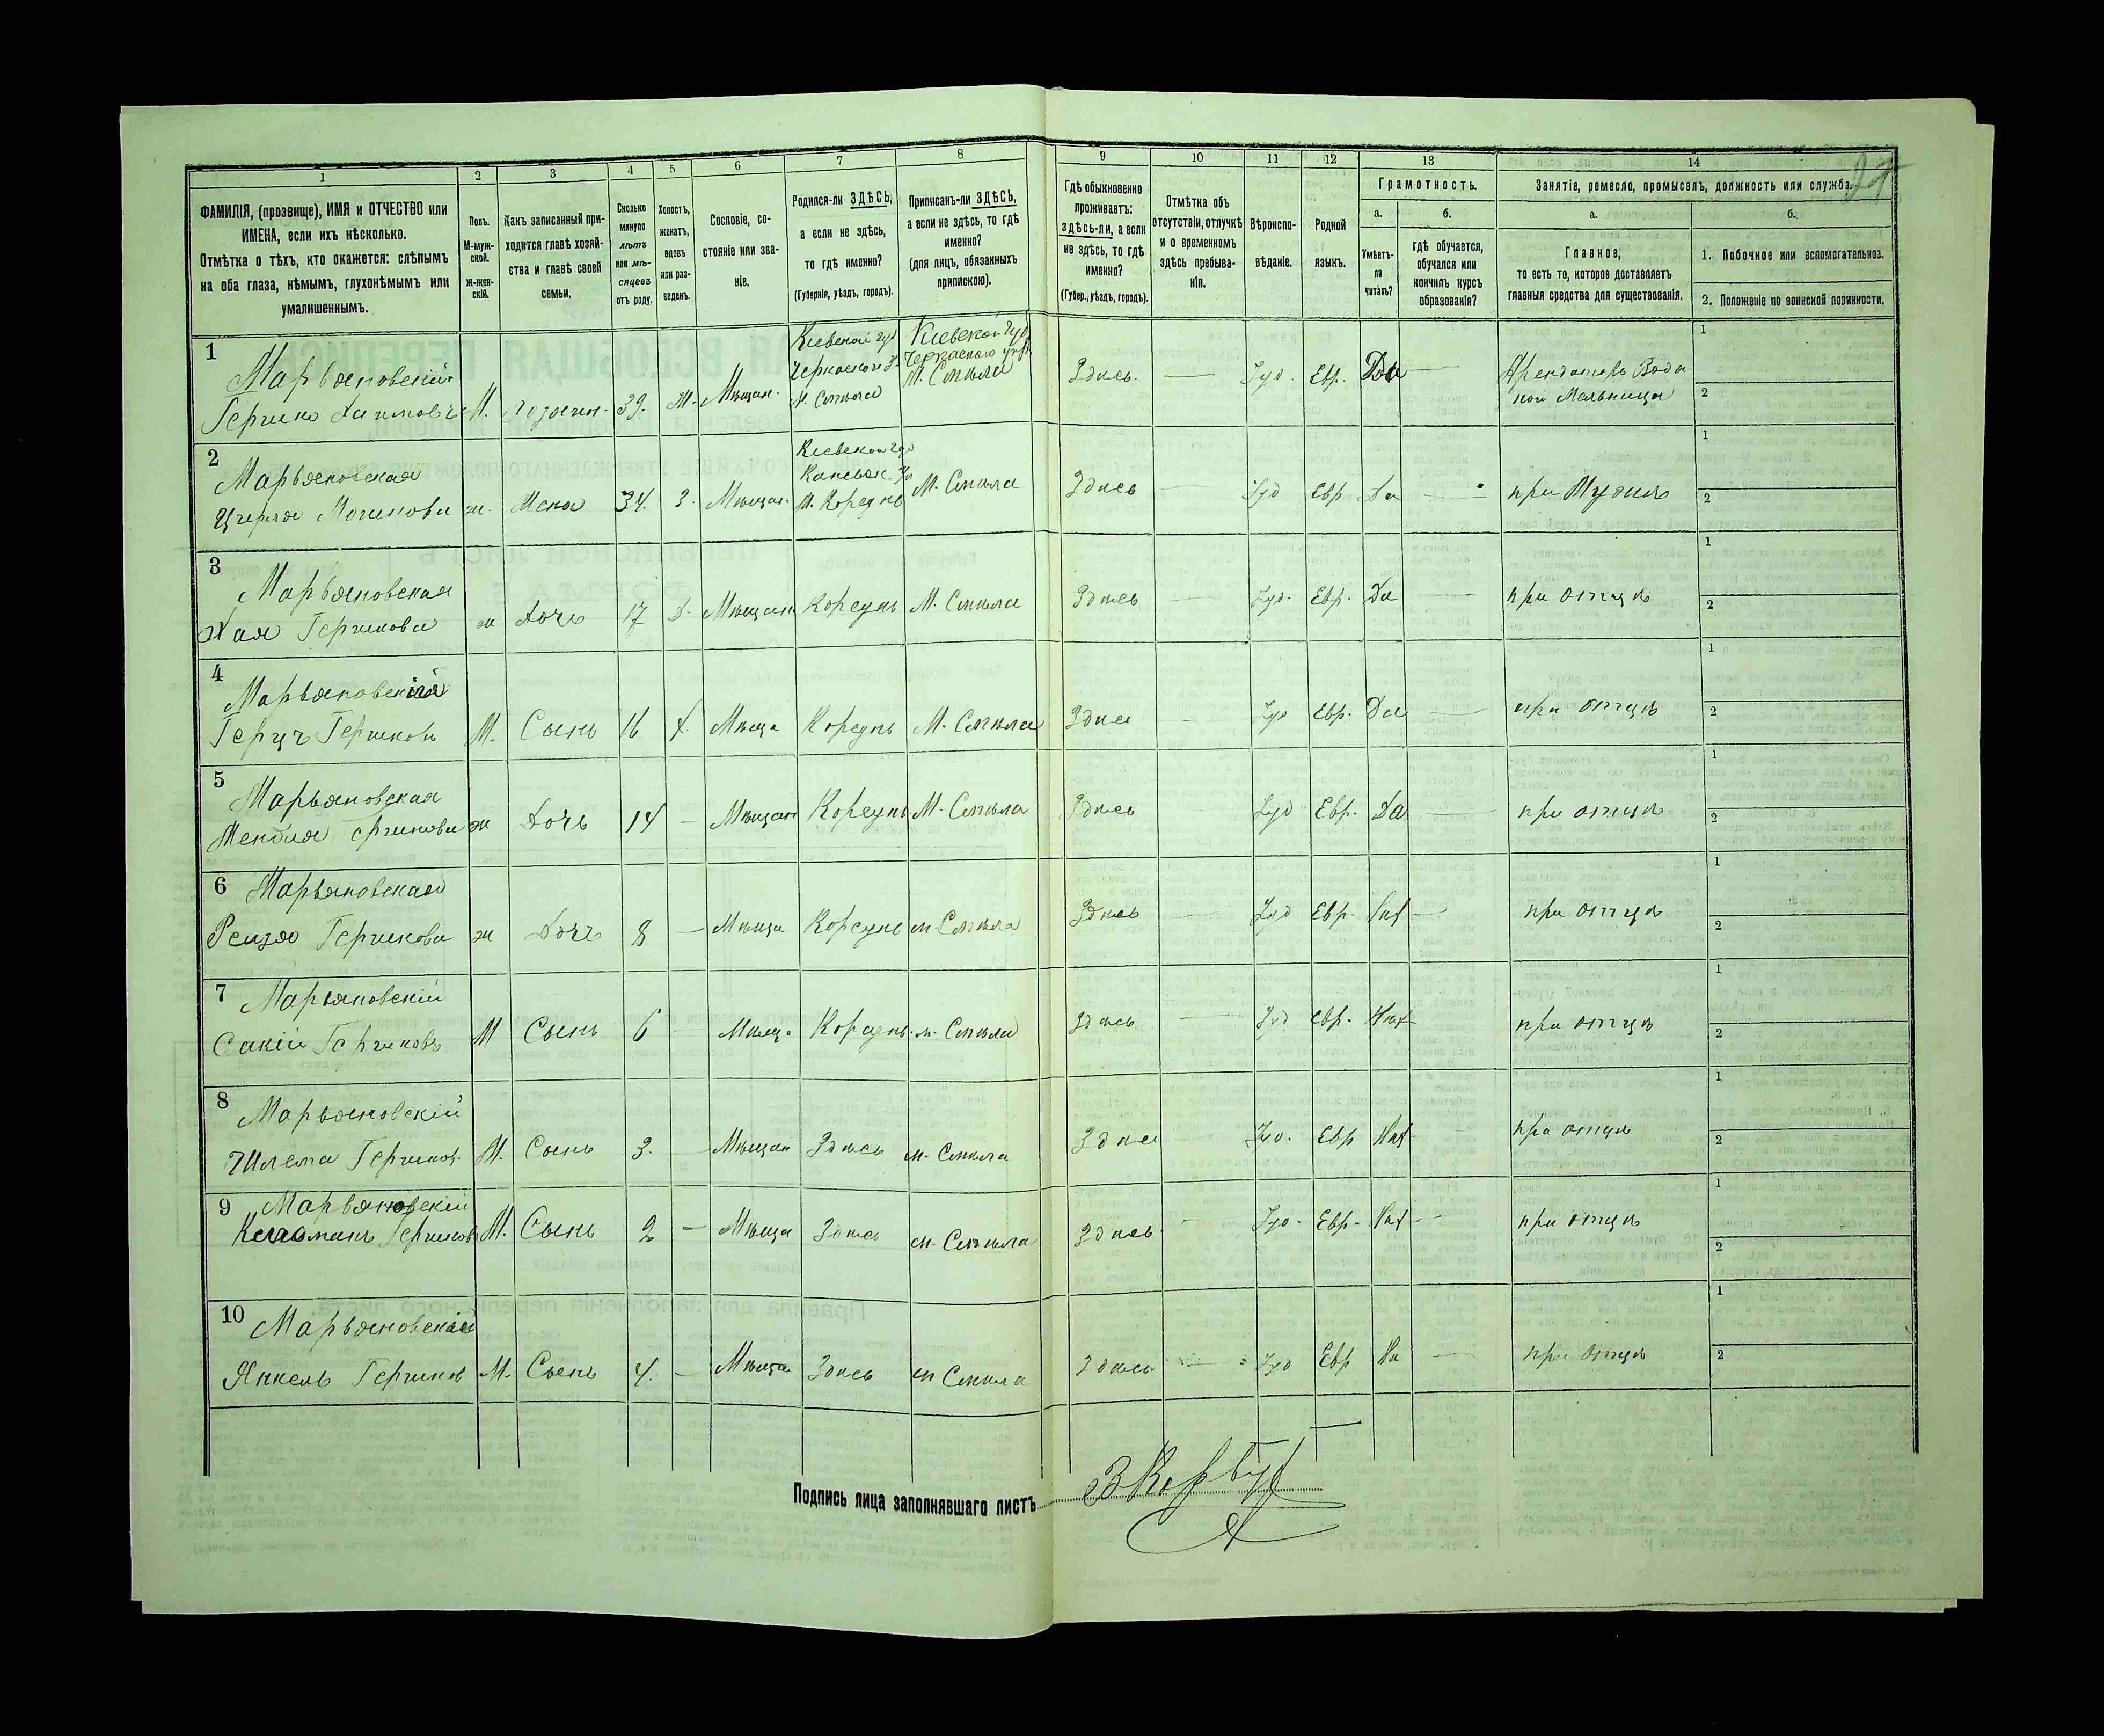 1
2
3
4
5
6
7
8
9
10
11
12
13
14
ФАМИЛІЯ, (прозвище), ИМЯ и ОТЧЕСТВО или
ИМЕНА, если ихъ нѣсколько.
Отмѣтка о тѣхъ, кто окажется: слѣпымъ
на оба глаза, нѣмымъ, глухонѣмымъ или
умалишеннымъ.
Полъ.
М-муж-
ской.
ж-жен-
скій.
Какъ записанный при-
ходится главѣ хозяй-
ства и главѣ своей
семьи.
Сколько
минуло
лѣтъ
или мѣ-
сяцевъ
отъ роду.
Холостъ,
женатъ,
вдовъ
или раз-
веденъ.
Сословіе, со-
стояніе или зва-
ніе.
Родился-ли ЗДѢСЬ,
а если не здѣсь,
то гдѣ именно?
(Губернія, уѣздъ, городъ).
Приписанъ-ли ЗДѢСЬ,
а если не здѣсь, то гдѣ
именно?
(для лицъ, обязанныхъ
припискою).
Гдѣ обыкновенно
проживаетъ:
здѣсь-ли, а если
не здѣсь, то гдѣ
именно?
(Губер., уѣздъ, городъ).
Отмѣтка объ
отсутствіи, отлучкѣ
и о временномъ
здѣсь пребыва-
ніи.
Вѣроиспо-
вѣданіе.
Родной
языкъ.
Грамотность.
а.
Умѣетъ-
ли
читать?
б.
гдѣ обучается,
обучался или
кончилъ курсъ
образованія?
Занятіе, ремесло, промыселъ, должность или служба.
а.
Главное,
то есть то, которое доставляетъ
главныя средства для существованія.
б.
1. Побочное или вспомогательноз.
2. Положеніе по воинской повинности.
1
Марьяновскій
Гершко Хаимовъ
М.
Хозяин.
39.
Ж.
Мѣщан.
Кіевской губ
Черкаскои У.
М. Смѣла
Кіевской Губ
Черкаского уѣз
М. Смѣла
Здѣсь.
—
Іуд.
Евр.
Да
—
Арендаторъ Водя
ной Мельницы
1
2
2
Марьяновская
Мошкова
ж.
Жена
34.
З.
Мѣщан.
Кіевской губ
Каневск. У
М. Корсунь
М. Смѣла
Здѣсь
—
Іуд
Евр
Да
—
при Мужѣ
1
2
3
Марьяновская
Хая Гершкова
ж
Дочь
17
Д.
Мѣщан
Корсунь
М. Смѣла
Здѣсь
—
Іуд.
Евр.
Да
—
при отцѣ
1
2
4
Марьяновскій
Герцъ Гершковъ
М.
Сынъ
16
Х.
Мѣща
Корсунь
М. Смѣла
Здѣсь
—
Іуд
Евр.
Да
—
при отцѣ
1
2
5
Марьяновская
Гершкова
ж
Дочь
14
—
Мѣщан
Корсунь
М. Смѣла
Здѣсь
—
Іуд
Евр.
Да
—
при отцѣ
1
2
6
Марьяновская
Рейзя Гершкова
ж
Дочь
8
—
Мѣща
Корсунь
м. Смѣла
Здѣсь
—
Іуд
Евр.
Нѣт
—
при отцѣ
1
2
7
Марьяновскій
Гершковъ
М
Сынъ
6
—
Мѣща
Корсунь
м. Смѣла
Здѣсь
—
Іуд
Евр.
Нѣт
при отцѣ
1
2
8
Марьяновскій
Шлема Гершков.
М.
Сынъ
3.
—
Мѣщан
Здѣсь
м. Смѣла
Здѣсь
—
Іуд.
Евр
Нѣт
при отцѣ
1
2
9
Марьяновскій
Гершков
М.
Сынъ
2
—
Мѣща
Здѣсь
м. Смѣла
Здѣсь
—
Іуд.
Евр.
Нѣт
—
при отцѣ
1
2
10
Марьяновскій
Янкель Гершков
М.
Сынъ
—
Мѣща
Здѣсь
м Смѣла
Здѣсь
—
Іуд
Евр
—
при отцѣ
1
2
Подпись лица заполнявшаго листъ